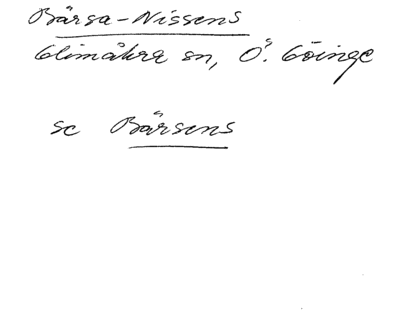 Bärsa-Nissens
Glimåkra sn, Ö. Göinge
se Bärsens